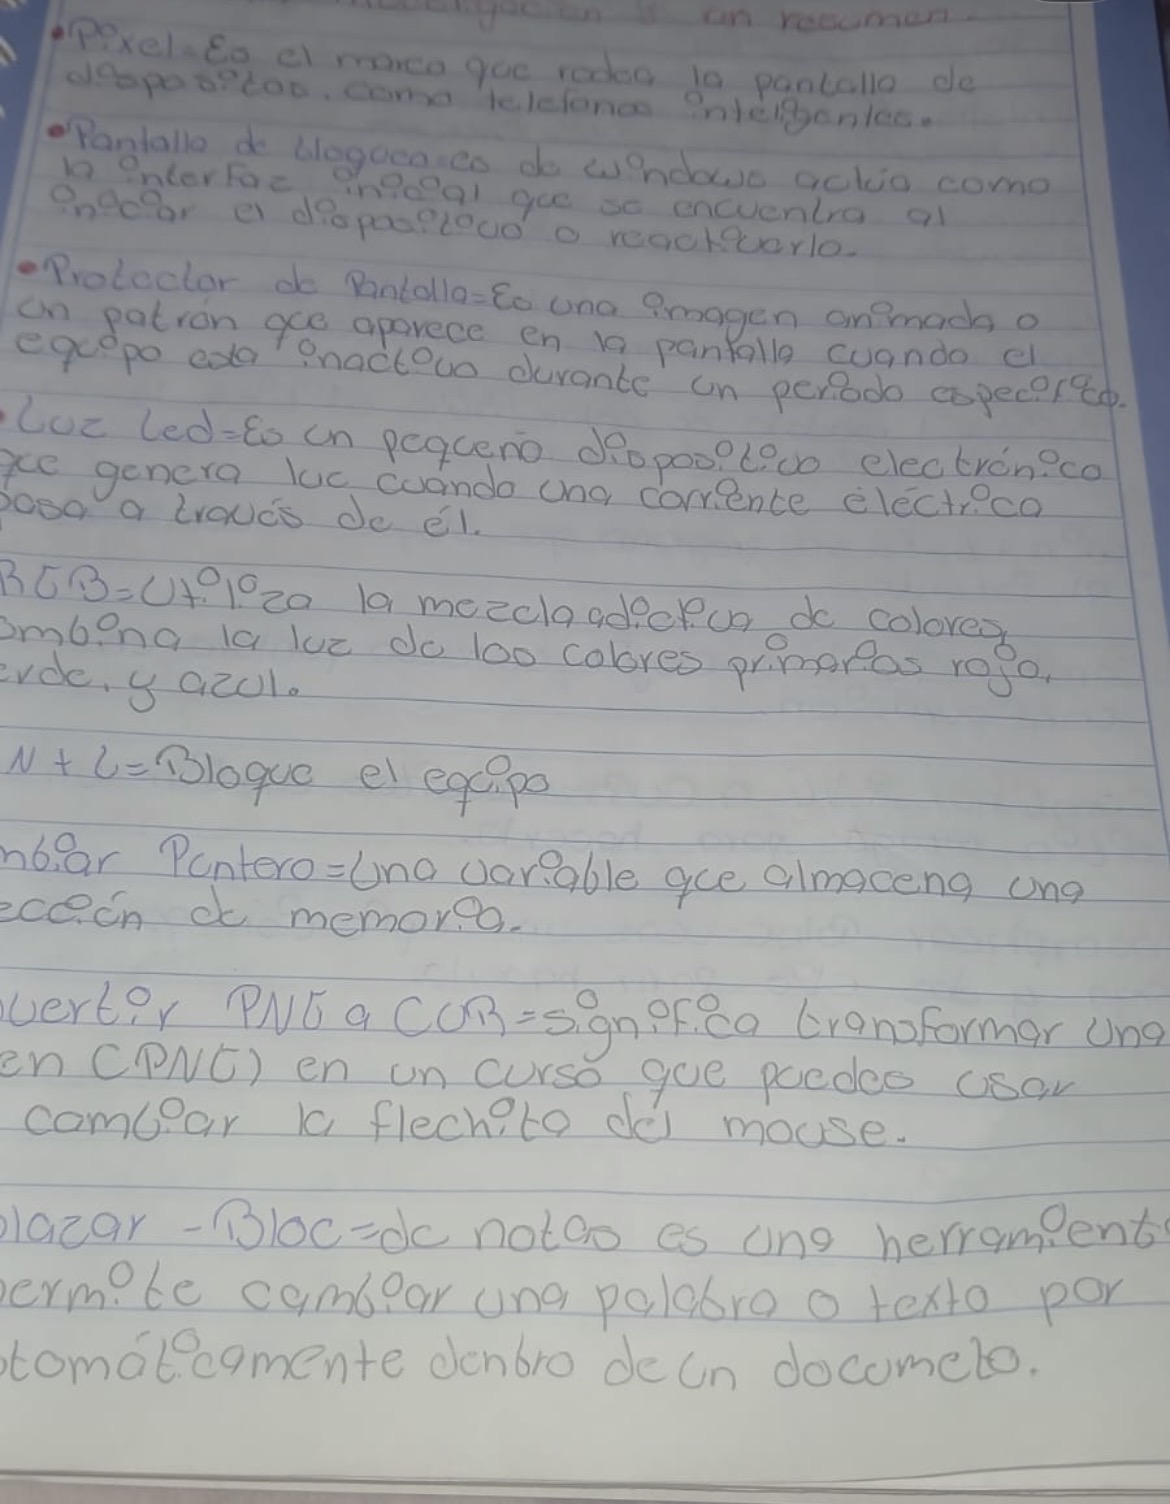 un resumen.
•Pixel=Es el marco que rodea la pantalla de
dispositos, como telefonos inteligentes.
•Pantalla de bloqueo=es de windows actúa como
la interfaz inicial que se encuentra al
iniciar el dispositivo o reactivarlo.
•Protector de Pantalla=Es una imagen animada o
un patrón que aparece en la pantalla cuando el
equipo esta inactivo durante un periodo especifico.
•Luz Led=Es un pequeño dispositivo electrónico
que genera luz cuando una corriente électrica
pasa a través de él.
RGB=Utiliza la mezcla adictiva de colores,
ombina la luz de los colores primarios rojo,
erde, y azul.
N + L=Bloque el equipo
mbiar Puntero=Una variable que almacena una
ección de memoria.
vertir PNG a CUR=significa transformar una
en (PNG) en un curso que puedes usar
cambiar la flechita del mouse.
plazar -Bloc=de notas es una herramient
permite cambiar una palabra o texto por
tomáticamente dentro de un documeto.